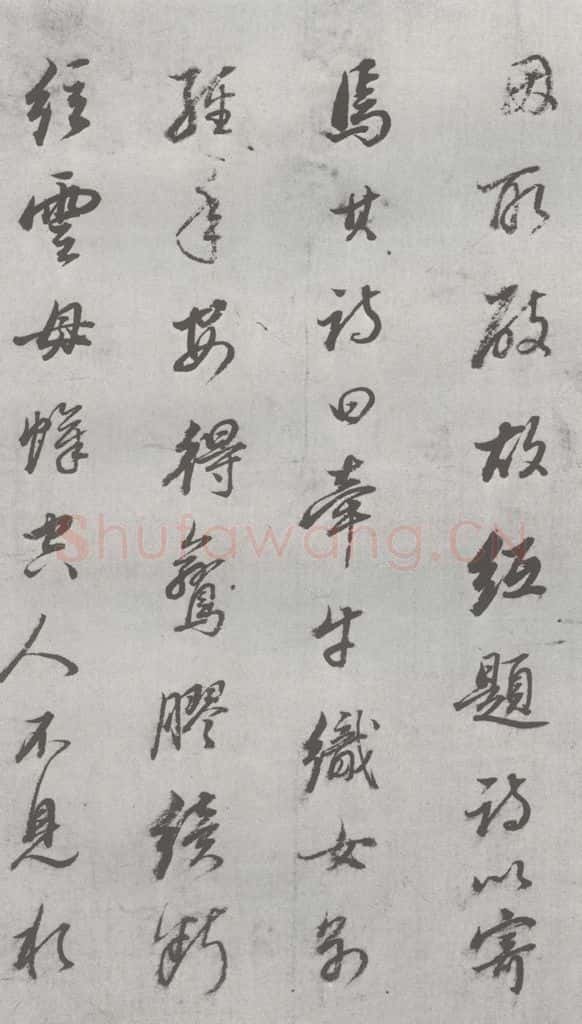 因取故紙題詩以寄
焉其詩曰牽牛織女別
經年安得鸞膠續斷
絃雲母帳空人不見水
Shufawang.CN